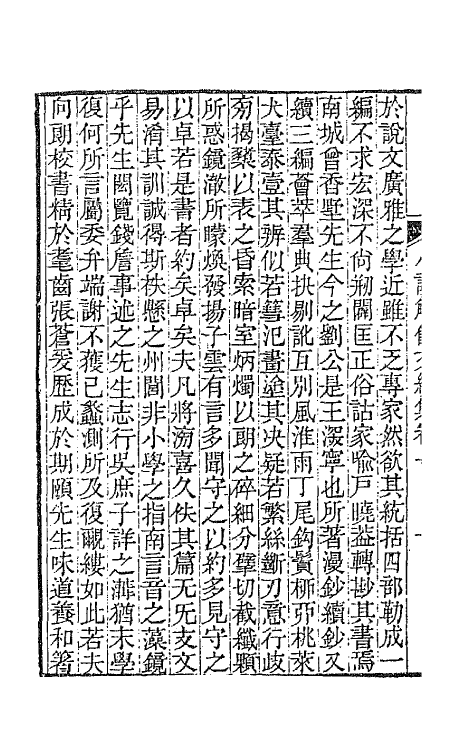 於說文廣雅之學近雖不乏專家然欲其統括四部勒成一
編不求宏深不尙剏闢匡正俗詁家喻戶曉葢轉尠其書焉
南城曾香墅先生今之劉公是王深寧也所著漫鈔續鈔又
續三編薈萃羣典抉剔訛互別風淮雨丁尾鉤鬚桺丣桃萊
犬臺泰壹其辨似若簪氾畫塗其决疑若繁絲斷刃意行歧
揭櫫以表之昏索暗室炳燭以朗之碎細分擘切截纖顆
所惑鏡澈所矇煥發揚子雲有言多聞守之以約多見守之
以卓若是書者約矣卓矣夫凡將滂喜久佚其篇无旡支文
易淆其訓誠得斯帙懸之州閭非小學之指南言音之藻鏡
乎先生閎覽錢詹事述之先生志行吳庶子詳之濰猶末學
復何所言屬委弁端謝不獲已蠡測所及復覼縷如此若夫
向朗校書精於耄齒張蒼爰歷成於期頤先生味道養和箸